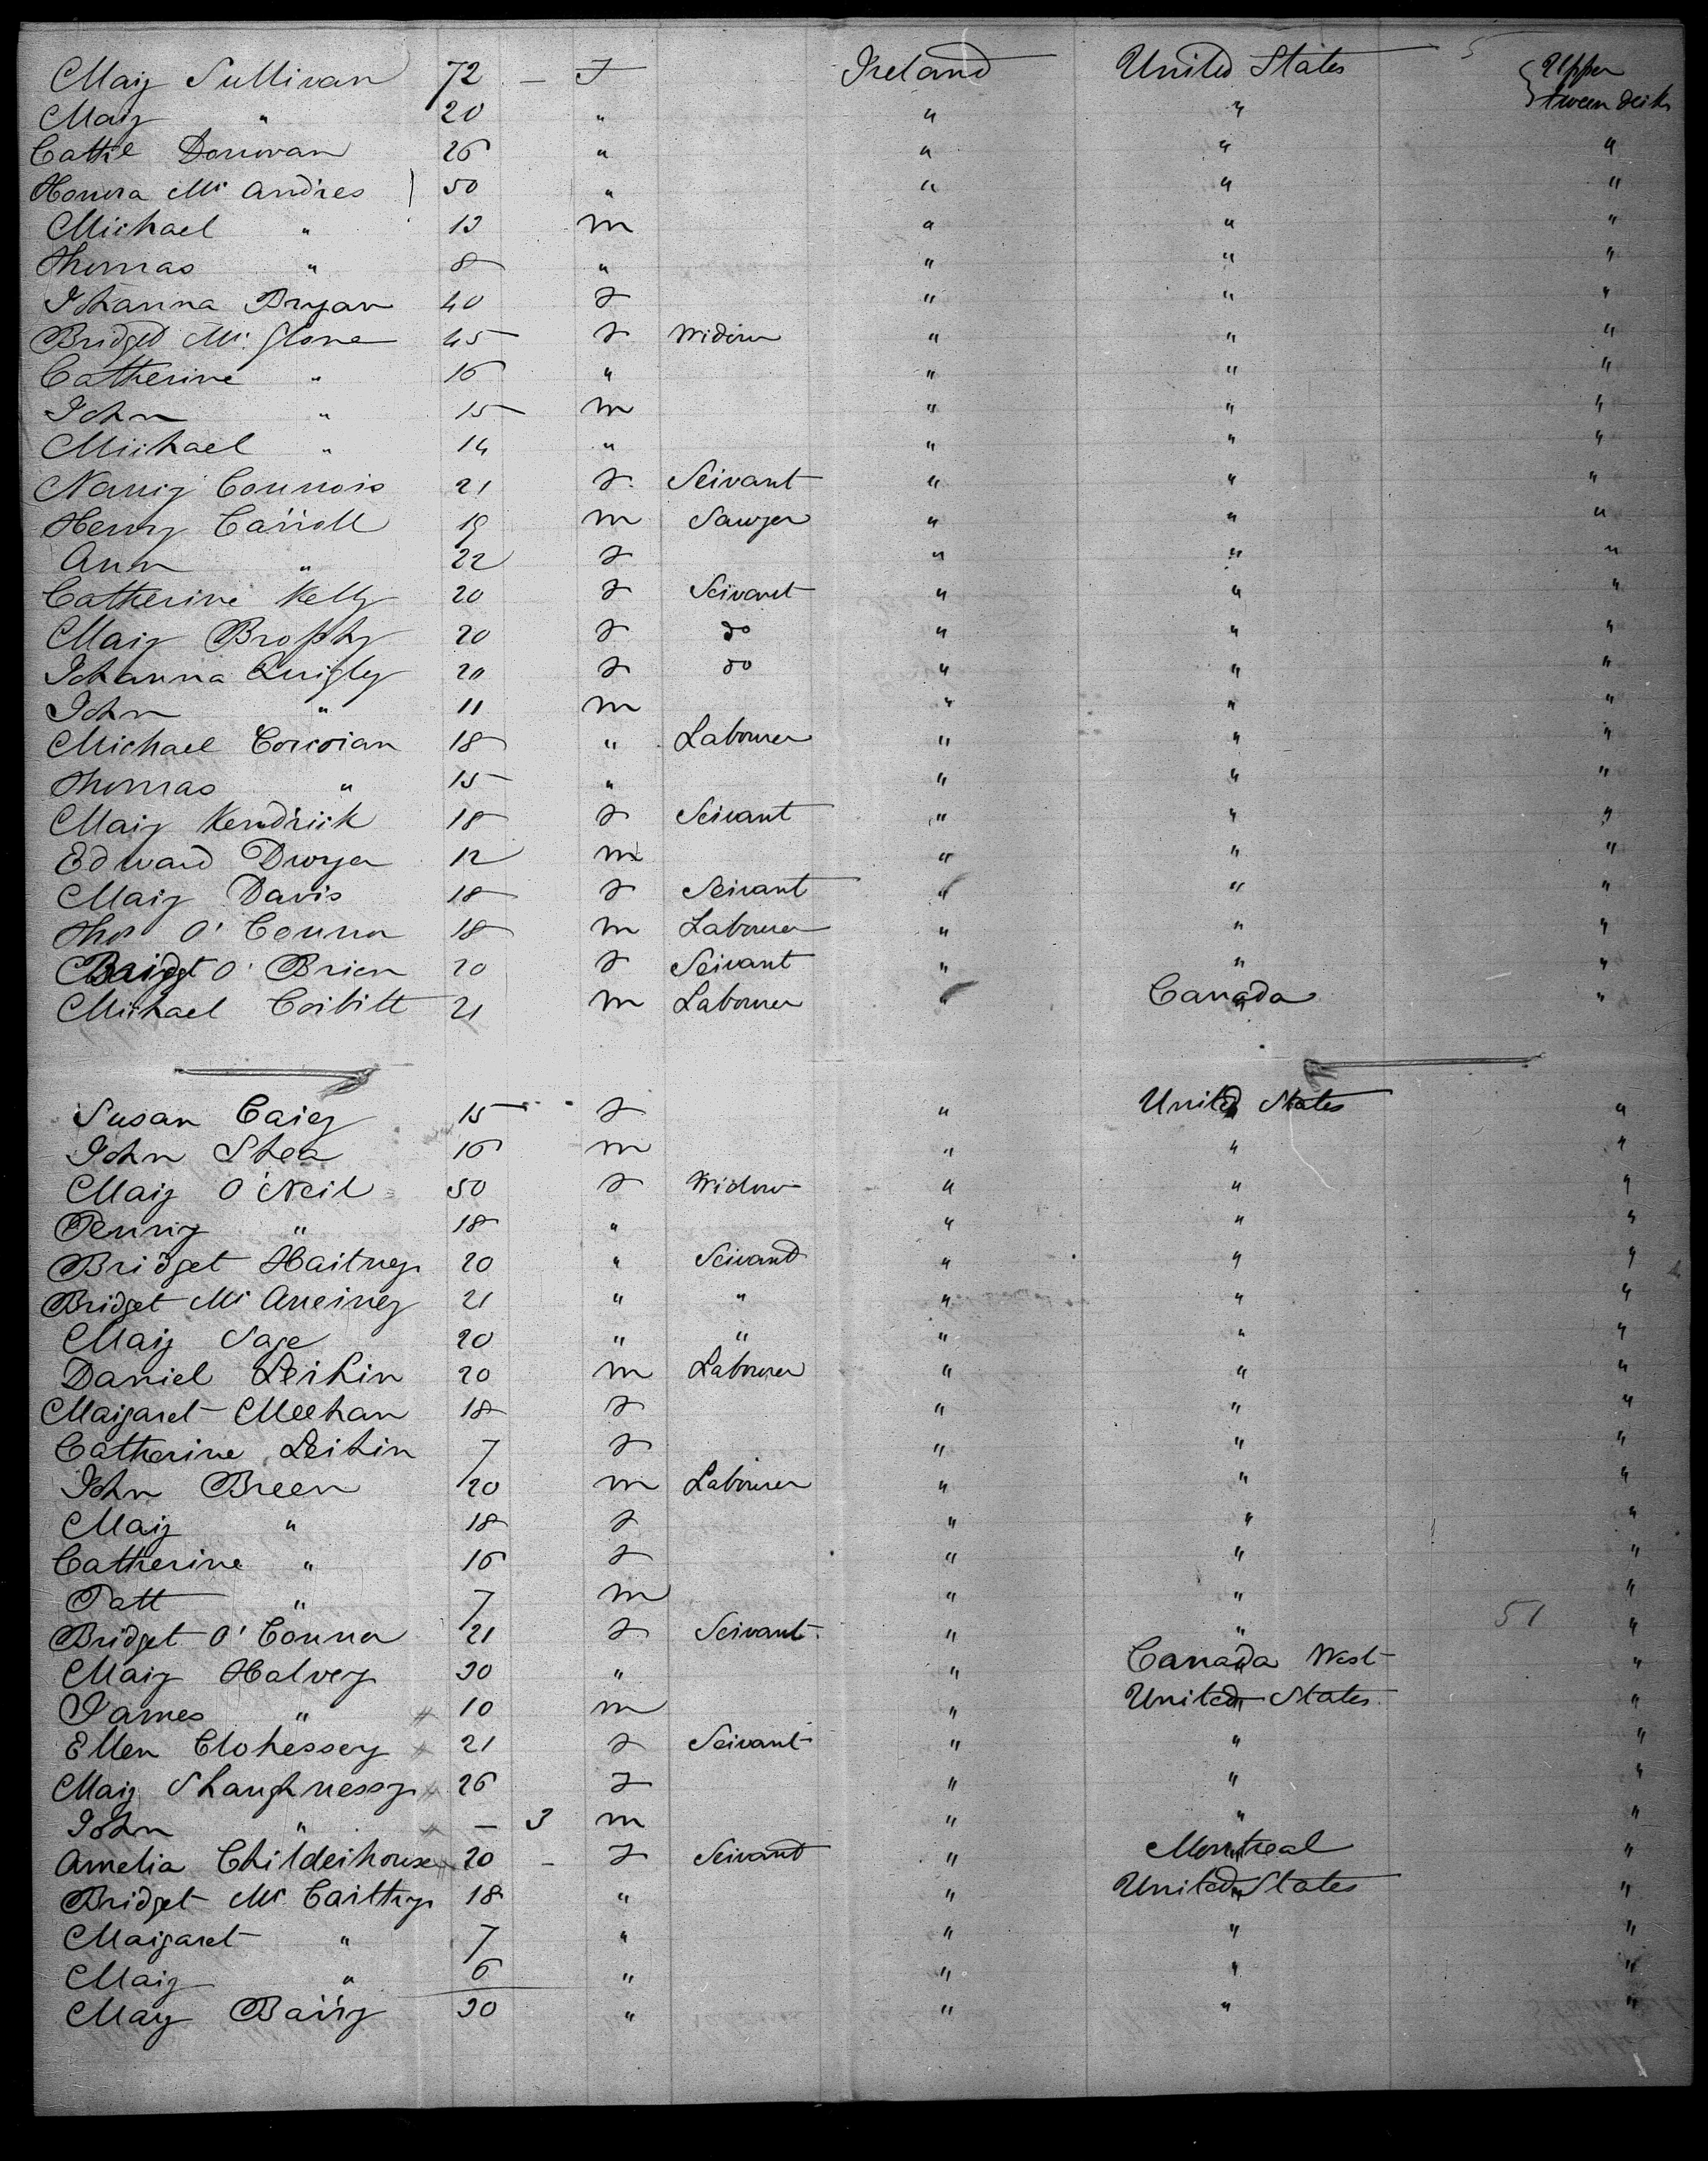 Mary Sullivan 72 – F Ireland United States 5 { Upper
Mary " 20 " " " tween decks
Cathe Donovan 26 " " " "
Honora Mc Andres 50 " " " "
Michael " 13 m " " "
Thomas " 8 " " " "
Johanna Bryan 40 F " " "
Bridget Mc Glone 45 F Widow " " "
Catherine " 16 " " " "
John " 15 m " " "
Michael " 14 " " " "
Nancy Connors 21 F Servant " " "
Henry Carroll 19 m Sawyer " " "
Ann " 22 F " " "
Catherine Kelly 20 F Servant " " "
Mary Brophy 20 F do " " "
Johanna Quigly 20 F do " " "
John " 11 m " " "
Michael Corcoran 18 " Labourer " " "
Thomas " 15 " " " "
Mary Kendrick 18 F Servant " " "
Edward Dwyer 12 m " " "
Mary Davis 18 F Servant " " "
Thos O'Connor 18 m Labourer " " "
Bridget O'Brien 20 F Servant " " "
Michael Corbitt 21 m Labourer " Canada "
Susan Carey 15 F " United States "
John Shea 16 m " " "
Mary O'Neil 50 F Widow " " "
Penny " 18 " " " "
Bridget Hartney 20 " Servant " " "
Bridget Mc Aneiney 21 " " " " "
Mary Sage 20 " " " " "
Daniel Lerhin 20 m Labourer " " "
Margaret Meehan 18 F " " "
Catherine Lerhin 7 F " " "
John Breen 20 m Labourer " " "
Mary " 18 F " " "
Catherine " 16 F " " "
Patt " 7 m " " "
Bridget O'Connor 21 F Servant " " 51 "
Mary Halvey 30 " " Canada West "
James " 10 m " United States "
Ellen Clohessey 21 F Servant " " "
Mary Shaughnessy 26 F " " "
John " – 3 m " " "
Amelia Childerhouse 20 – F Servant " Montreal "
Bridget Mc Carthy 18 " " United States "
Margaret " 7 " " " "
Mary " 6 " " " "
Mary Barry 30 " " " "